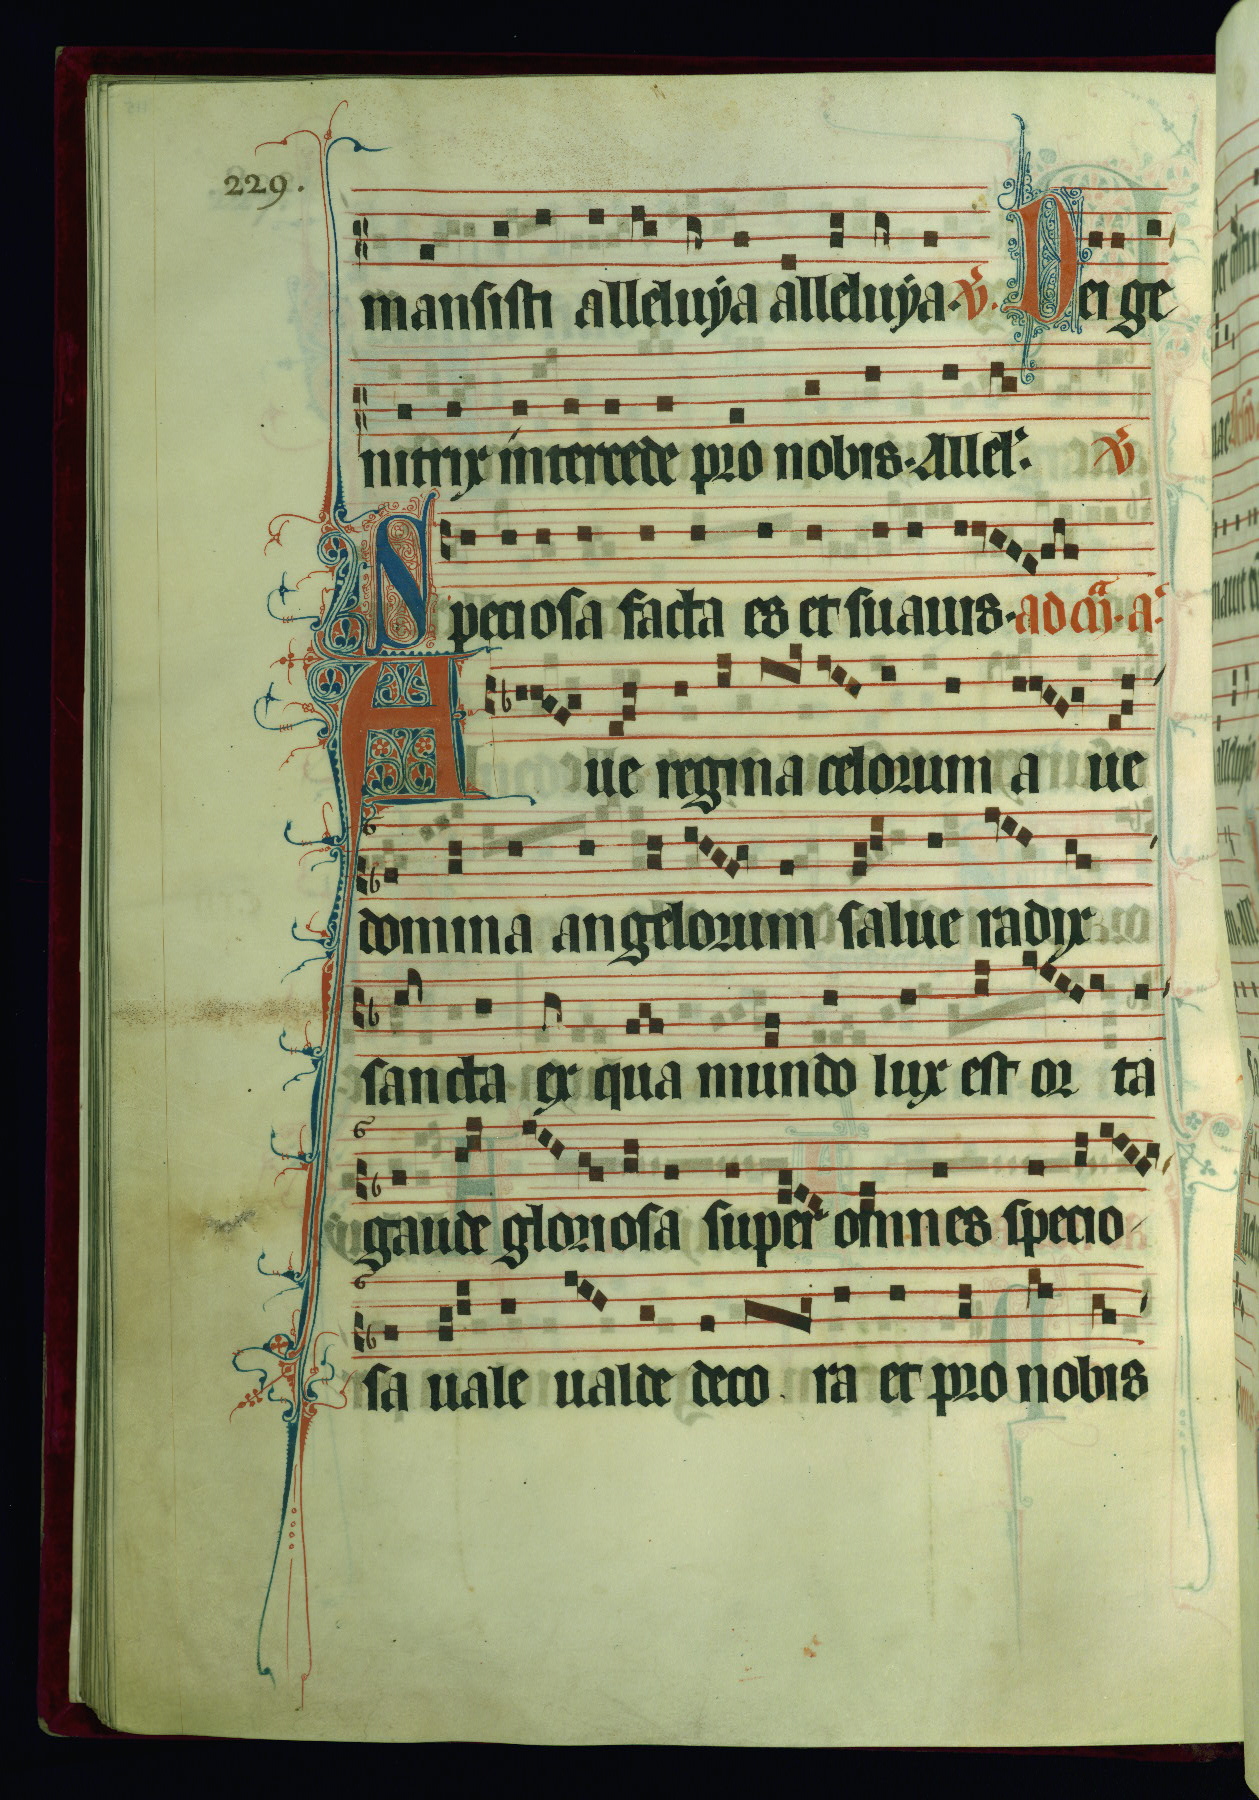 229.
mansisti alleluÿa alleluÿa. V. Dei ge
nitrix intercede pro nobis. Allel'. V
Speciosa facta es et suauis. ad cm̄. a.
Aue regina celorum a ue
domina angelorum salue radix
sancta ex qua mundo lux est or ta
gaude gloriosa super omnes specio
sa uale ualde deco ra et pro nobis